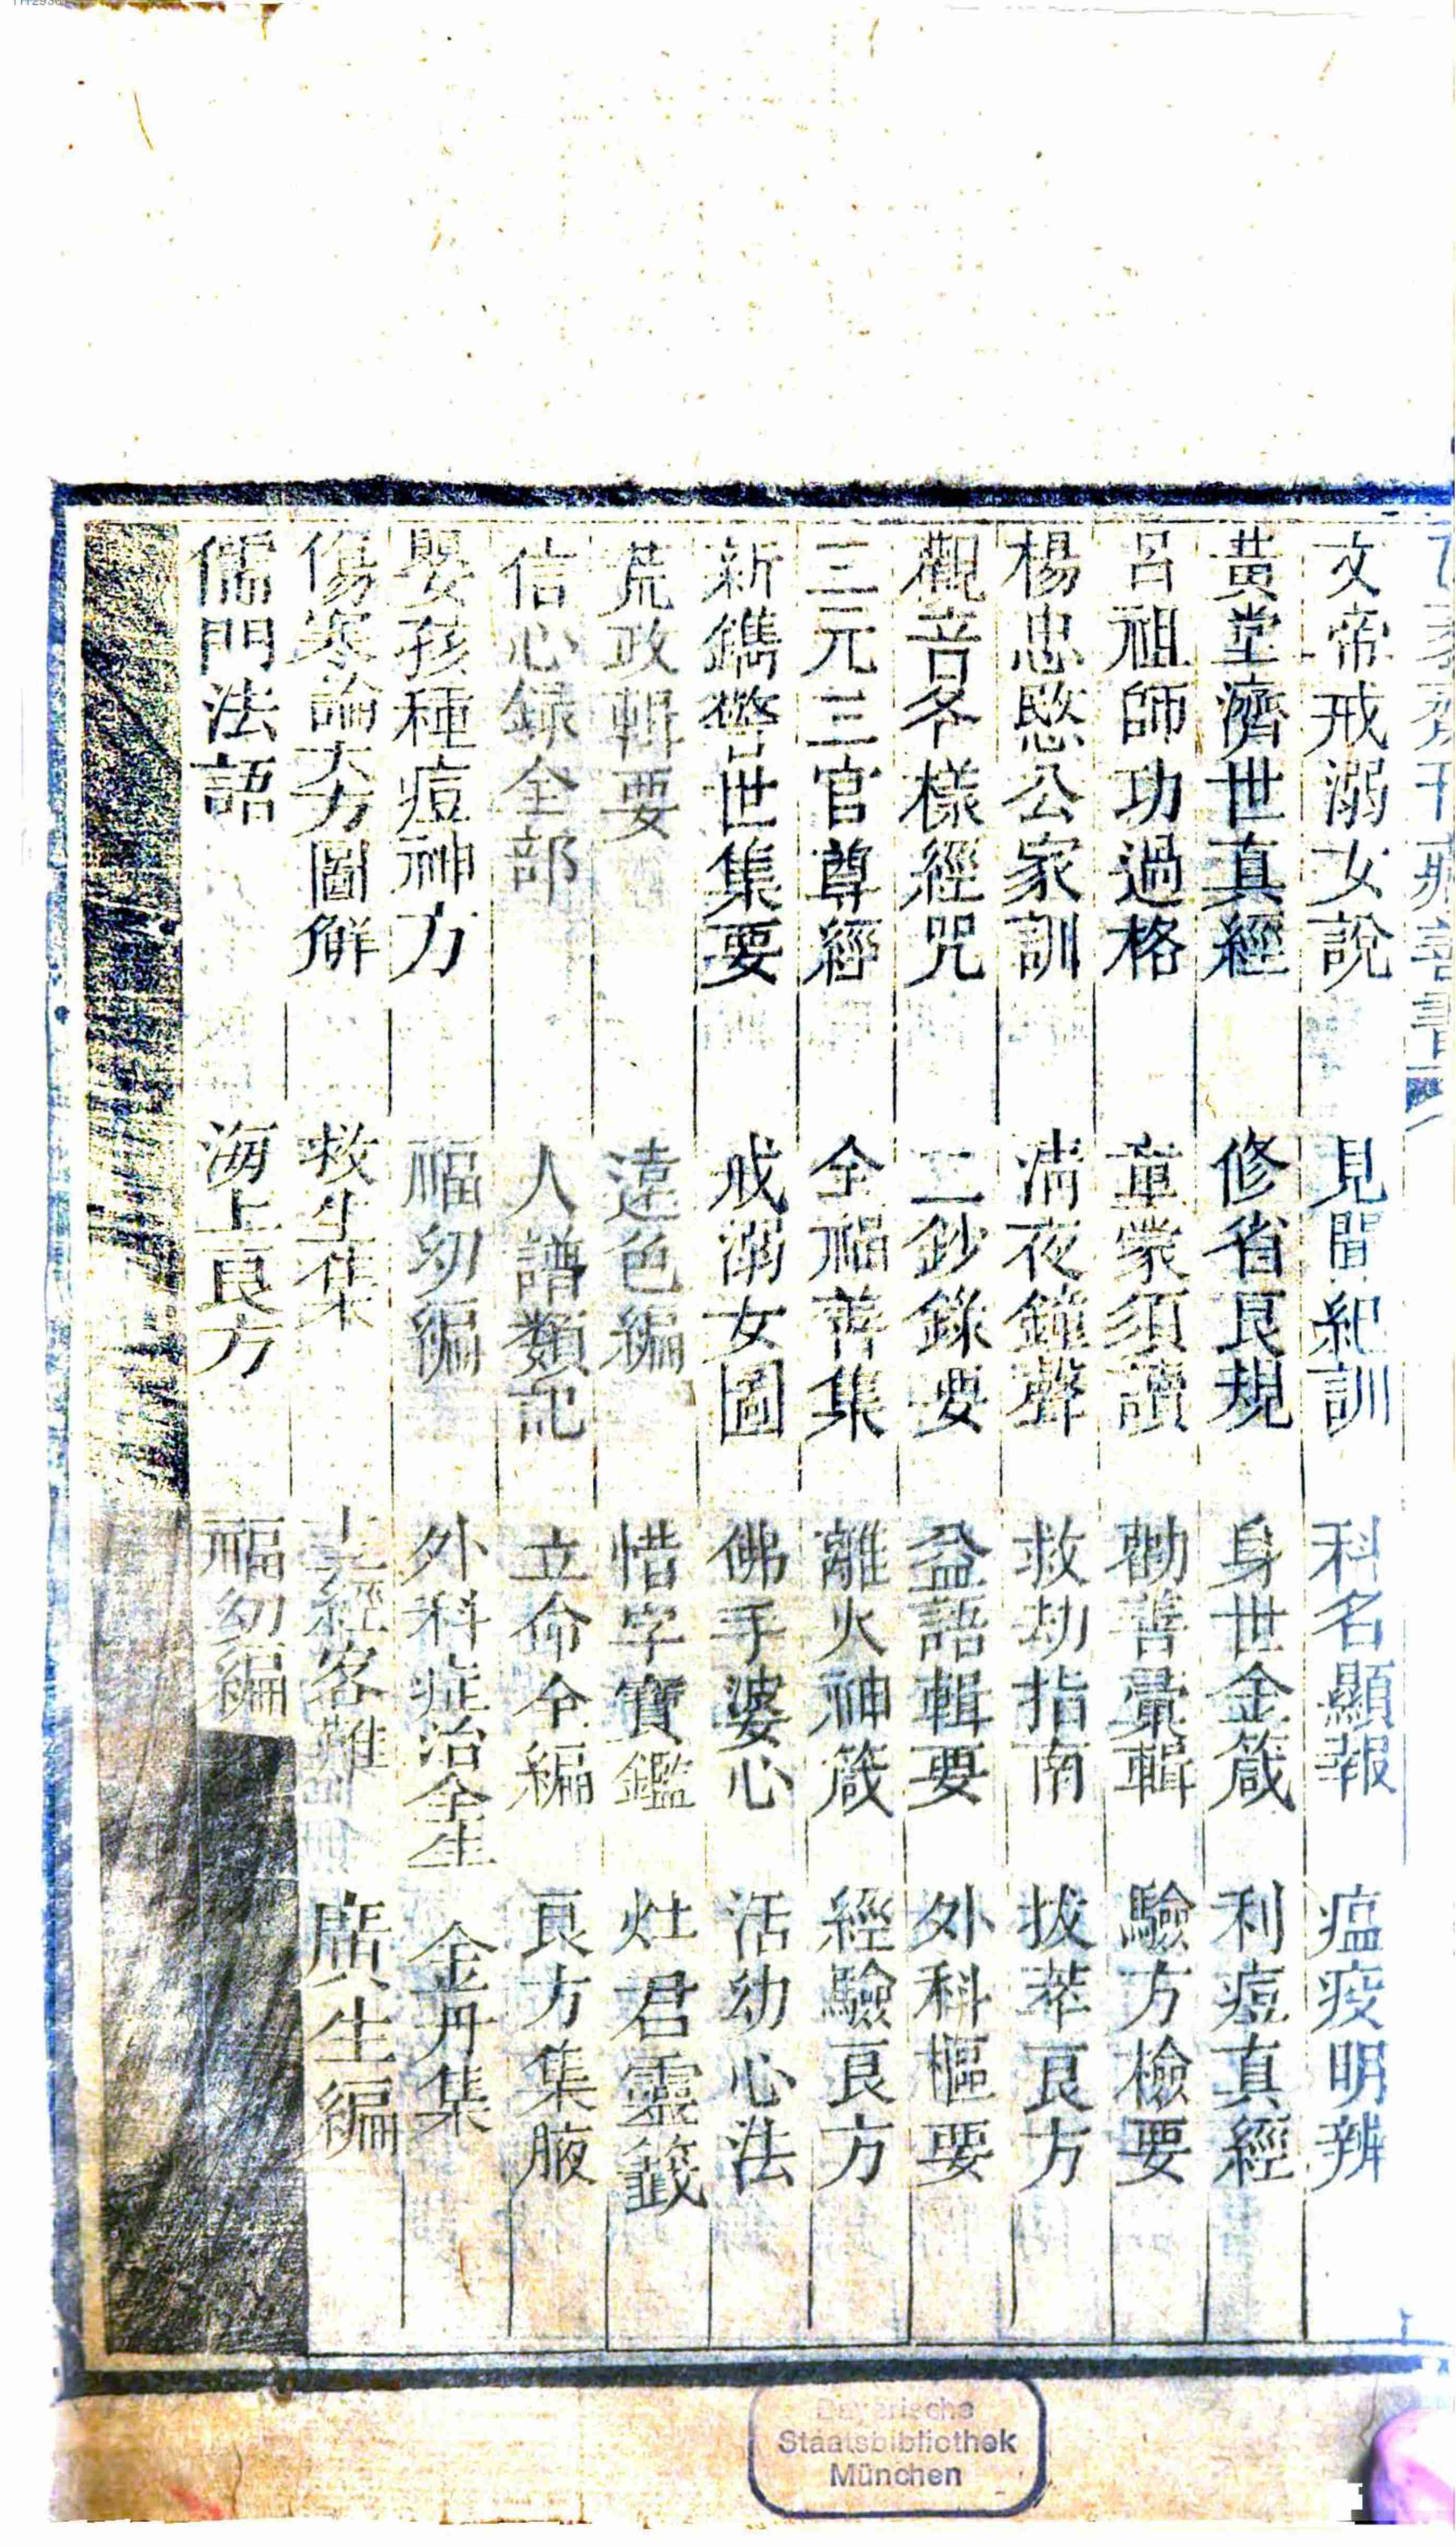 文帝戒溺女說 見聞紀訓 科名顯報 瘟疫明辨
黃堂濟世真經 修省良規 身世金箴 利痘真經
呂祖師功過格 童蒙須讀 勸善彙輯 驗方檢要
楊忠愍公家訓 清夜鐘聲 救劫指南 拔萃良方
觀音各樣經咒 二鈔錄要 益語輯要 外科樞要
三元三官尊經 全福善集 離火神箴 經驗良方
新鐫警世集要 戒溺女圖 佛手婆心 活幼心法
荒政輯要 遠色編 惜字寶鑑 灶君靈籤
信心録全部 人譜類記 立命全編 良方集腋
嬰孩種痘神方 福幼編 外科症治全生 金丹集
傷寒論大方圖解 救生集 十三經客難 廣生編
儒門法語 海上良方 福幼編
Bayerische
Staatsbibliothek
München